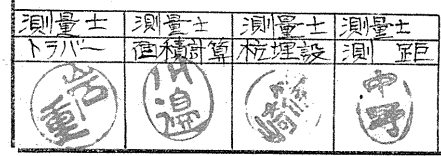 測量士 測量士 測量士 測量士
トラバー 面積計算 杭埋設 測距
岩重 川邉 中野